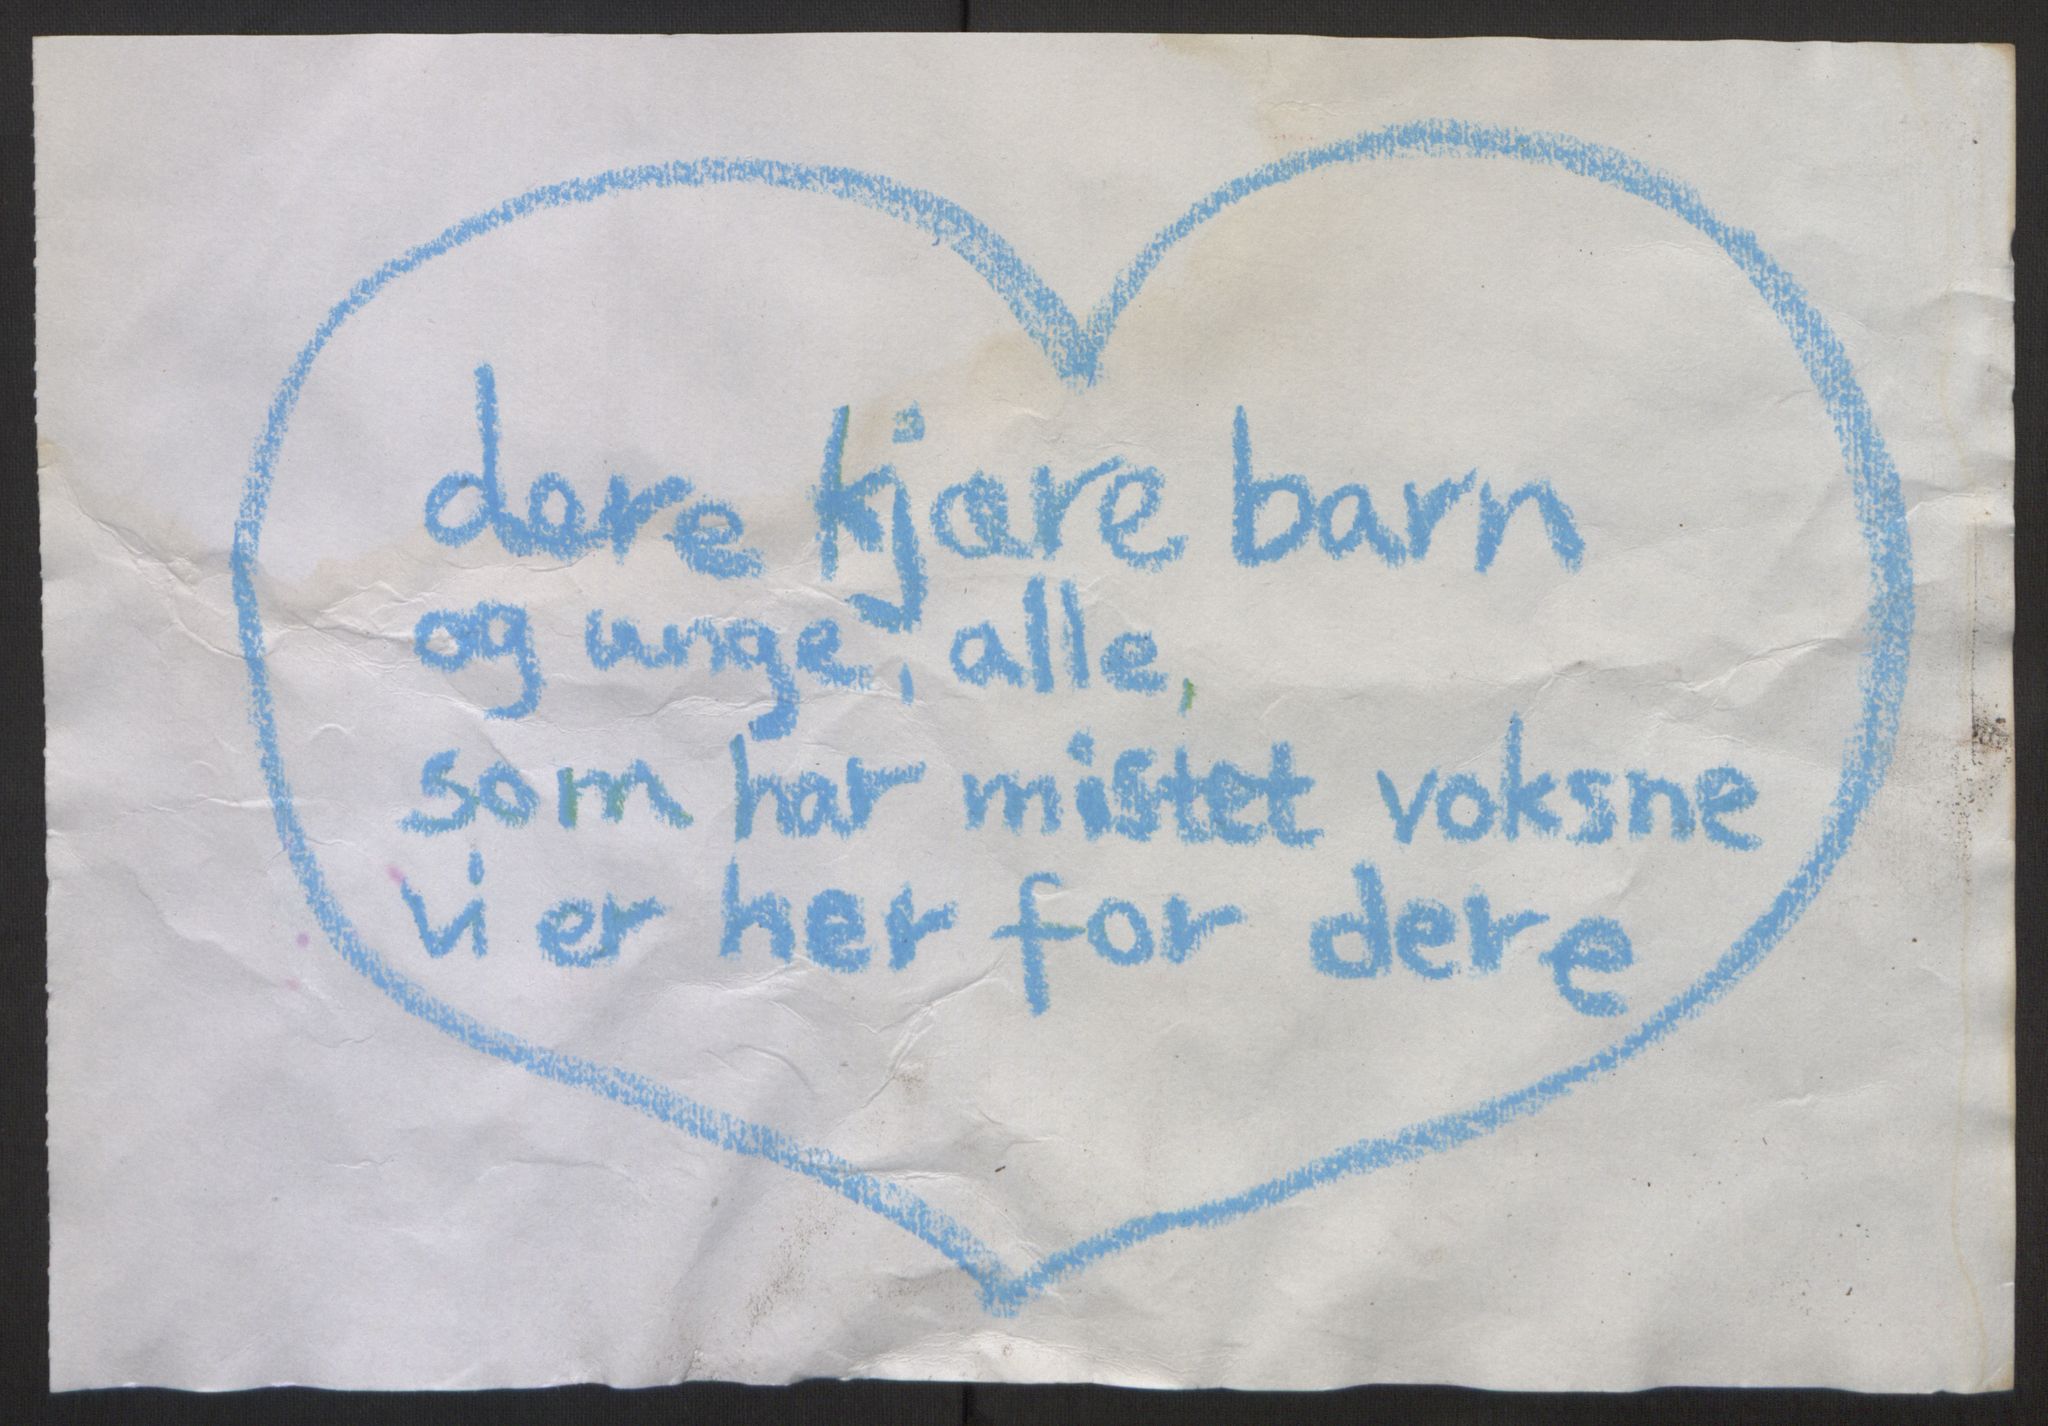 dere kjære barn
og unge, alle,
som har mistet voksne
vi er her for dere